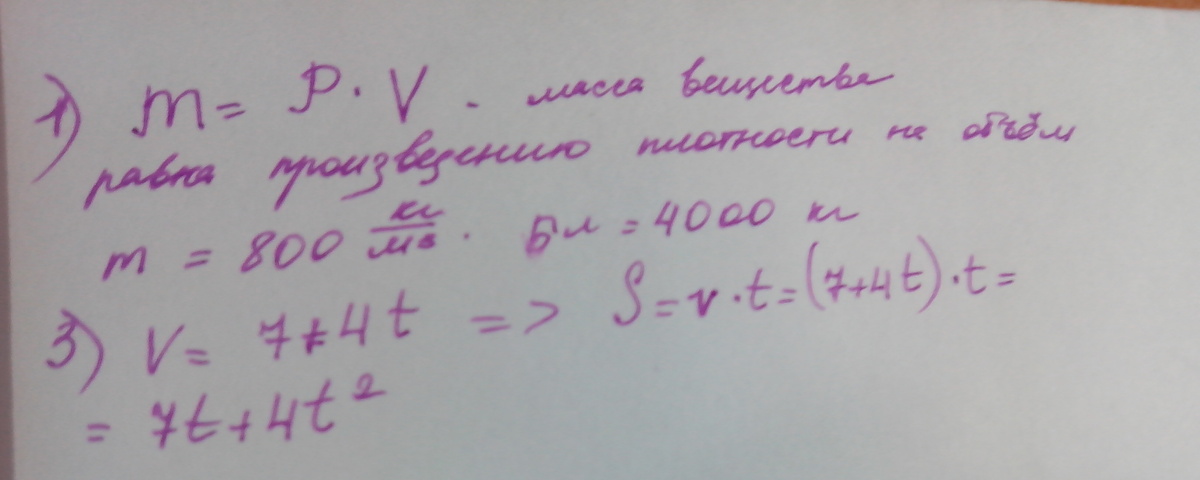 1) m = ρ · V - масса вещества
равна произведению плотности на объём
m = 800 кг/м³ · 5 л = 4000 кг
3) V = 7+4t => S = v · t = (7+4t) · t =
= 7t + 4t²